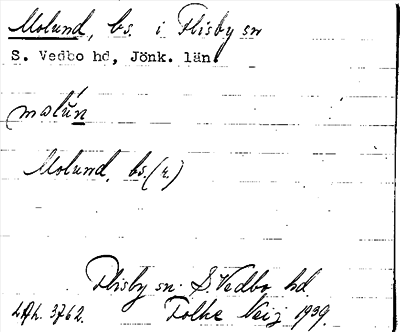 Molund, bs. i Flisby sn
S. Vedbo hd, Jönk. län.
Molund, bs. (r.)
Flisby sn. S. Vedbo hd.
3762. Folke 1939.